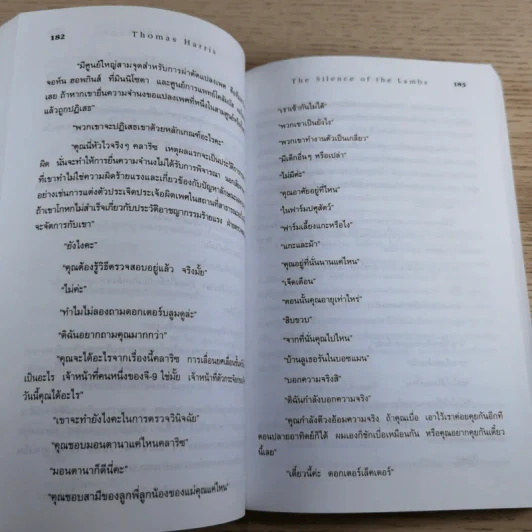 182
Thomas Harris
"มีศูนย์ใหญ่สามจุดสำหรับการผ่าตัดแปลงเพศ
จอห์น ฮอพกินส์ ที่มินนิโซตา และศูนย์การแพทย์โคลัมบัส
เลย ถ้าหากเขายื่นความจำนงขอแปลงเพศที่หนึ่งในสามศูนย์
แล้วถูกปฏิเสธ"
"พวกเขาจะปฏิเสธเขาด้วยหลักเกณฑ์อะไรคะ"
"คุณนี่หัวไวจริงๆ คลาริซ เหตุผลแรกจะเป็นประวัติ
ผิด นั่นจะทำให้การยื่นความจำนงไม่ได้รับการพิจารณา
ที่เขาทำไม่ใช่ความผิดร้ายแรงและเกี่ยวข้องกับปัญหา
อย่างเช่นการแต่งตัวประเจิดประเจ้อผิดเพศในสถานที่สาธารณะ
ถ้าเขาโกหกไม่สำเร็จเกี่ยวกับประวัติอาชญากรรมร้ายแรง
จะจัดการกับเขา"
"ยังไงคะ"
"คุณต้องรู้วิธีตรวจสอบอยู่แล้ว จริงมั้ย"
"ไม่ค่ะ"
"ทำไมไม่ลองถามดอกเตอร์บลูมดูล่ะ"
"ดิฉันอยากถามคุณมากกว่า"
"คุณจะได้อะไรจากเรื่องนี้คลาริซ การเลื่อนยศเลื่อนขั้น
เป็นอะไร เจ้าหน้าที่คนหนึ่งของจี-9 ใช่มั้ย เจ้าหน้าที่
วันนี้คุณได้อะไร"
"เขาจะทำยังไงคะในการตรวจวินิจฉัย"
"คุณชอบมอนตานาแค่ไหนคลาริซ"
"มอนตานาก็ดีนี่คะ"
"คุณชอบสามีของลูกพี่ลูกน้องของแม่คุณแค่ไหน"
The Silence of the Lambs
183
"เราเข้ากันไม่ได้"
"พวกเขาเป็นยังไง"
"พวกเขาทำงานตัวเป็นเกลียว"
"มีเด็กอื่นๆ หรือเปล่า"
"ไม่มีค่ะ"
"คุณอาศัยอยู่ที่ไหน"
"ในฟาร์มปศุสัตว์"
"ฟาร์มเลี้ยงแกะหรือไง"
"แกะและม้า"
"คุณอยู่ที่นั่นนานแค่ไหน"
"เจ็ดเดือน"
"ตอนนั้นคุณอายุเท่าไหร่"
"สิบขวบ"
"จากที่นั่นคุณไปไหน"
"บ้านลูเธอรันในบอซแมน"
"บอกความจริงสิ"
"ดิฉันกำลังบอกความจริง"
"คุณกำลังดิ้วอ้อมความจริง ถ้าคุณเบื่อ เอาไว้เราค่อยคุยกันอีกที
ตอนปลายอาทิตย์ก็ได้ ผมเองก็ชักเบื่อเหมือนกัน หรือคุณอยากคุยกันเดี๋ยว
นี้เลย"
"เดี๋ยวนี้ค่ะ ดอกเตอร์เล็คเตอร์"